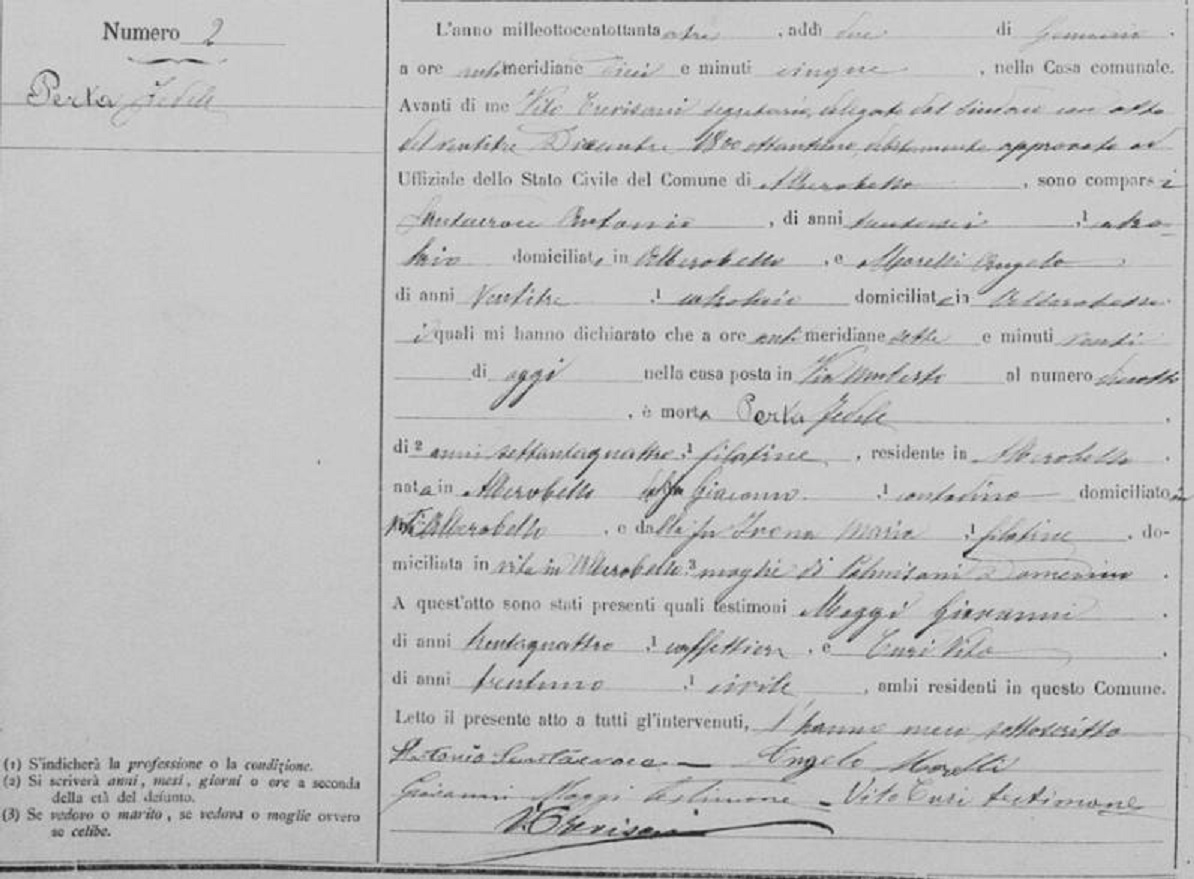 Numero 2
Perta Fedele
L'anno milleottocentottanta, addì due di Gennaio.
a ore antimeridiane dieci e minuti cinque, nella Casa comunale.
Avanti di me Vito Trevisani segretario, delegato dal sindaco con atto
del ventitre Dicembre 1800 ottantuno, debitamente approvato ad
Uffiziale dello Stato Civile del Comune di Alberobello, sono comparsi
Santacroce Antonio, di anni,
domiciliato in Alberobello, e Morelli Angelo
di anni Ventitre, domiciliato in Alberobello
i quali mi hanno dichiarato che a ore antimeridiane sette e minuti venti
di oggi nella casa posta in Via Umberto al numero diciotto
, è morta Perta Fedele.
di anni settantaquattro, filatrice, residente in Alberobello.
nata in Alberobello dal fu Giacomo, contadino domiciliato in
vita in Alberobello, e dalla fu Maria, filatrice, do-
miciliata in vita in Alberobello, moglie di Palmisani Domenico.
A quest'atto sono stati presenti quali testimoni Maggi Giovanni
di anni trentaquattro, caffettiere, e Turi Vito
di anni trentuno, civile, ambi residenti in questo Comune.
Letto il presente atto a tutti gl'intervenuti, l'hanno meco sottoscritto
Antonio Santacroce Angelo Morelli
Giovanni Maggi testimone Vito Turi testimone
V. Trevisani
(1) S'indicherà la professione o la condizione.
(2) Si scriverà anni, mesi, giorni o ore a seconda
della età del defunto.
(3) Se vedovo o marito, se vedova o moglie ovvero
se celibe.